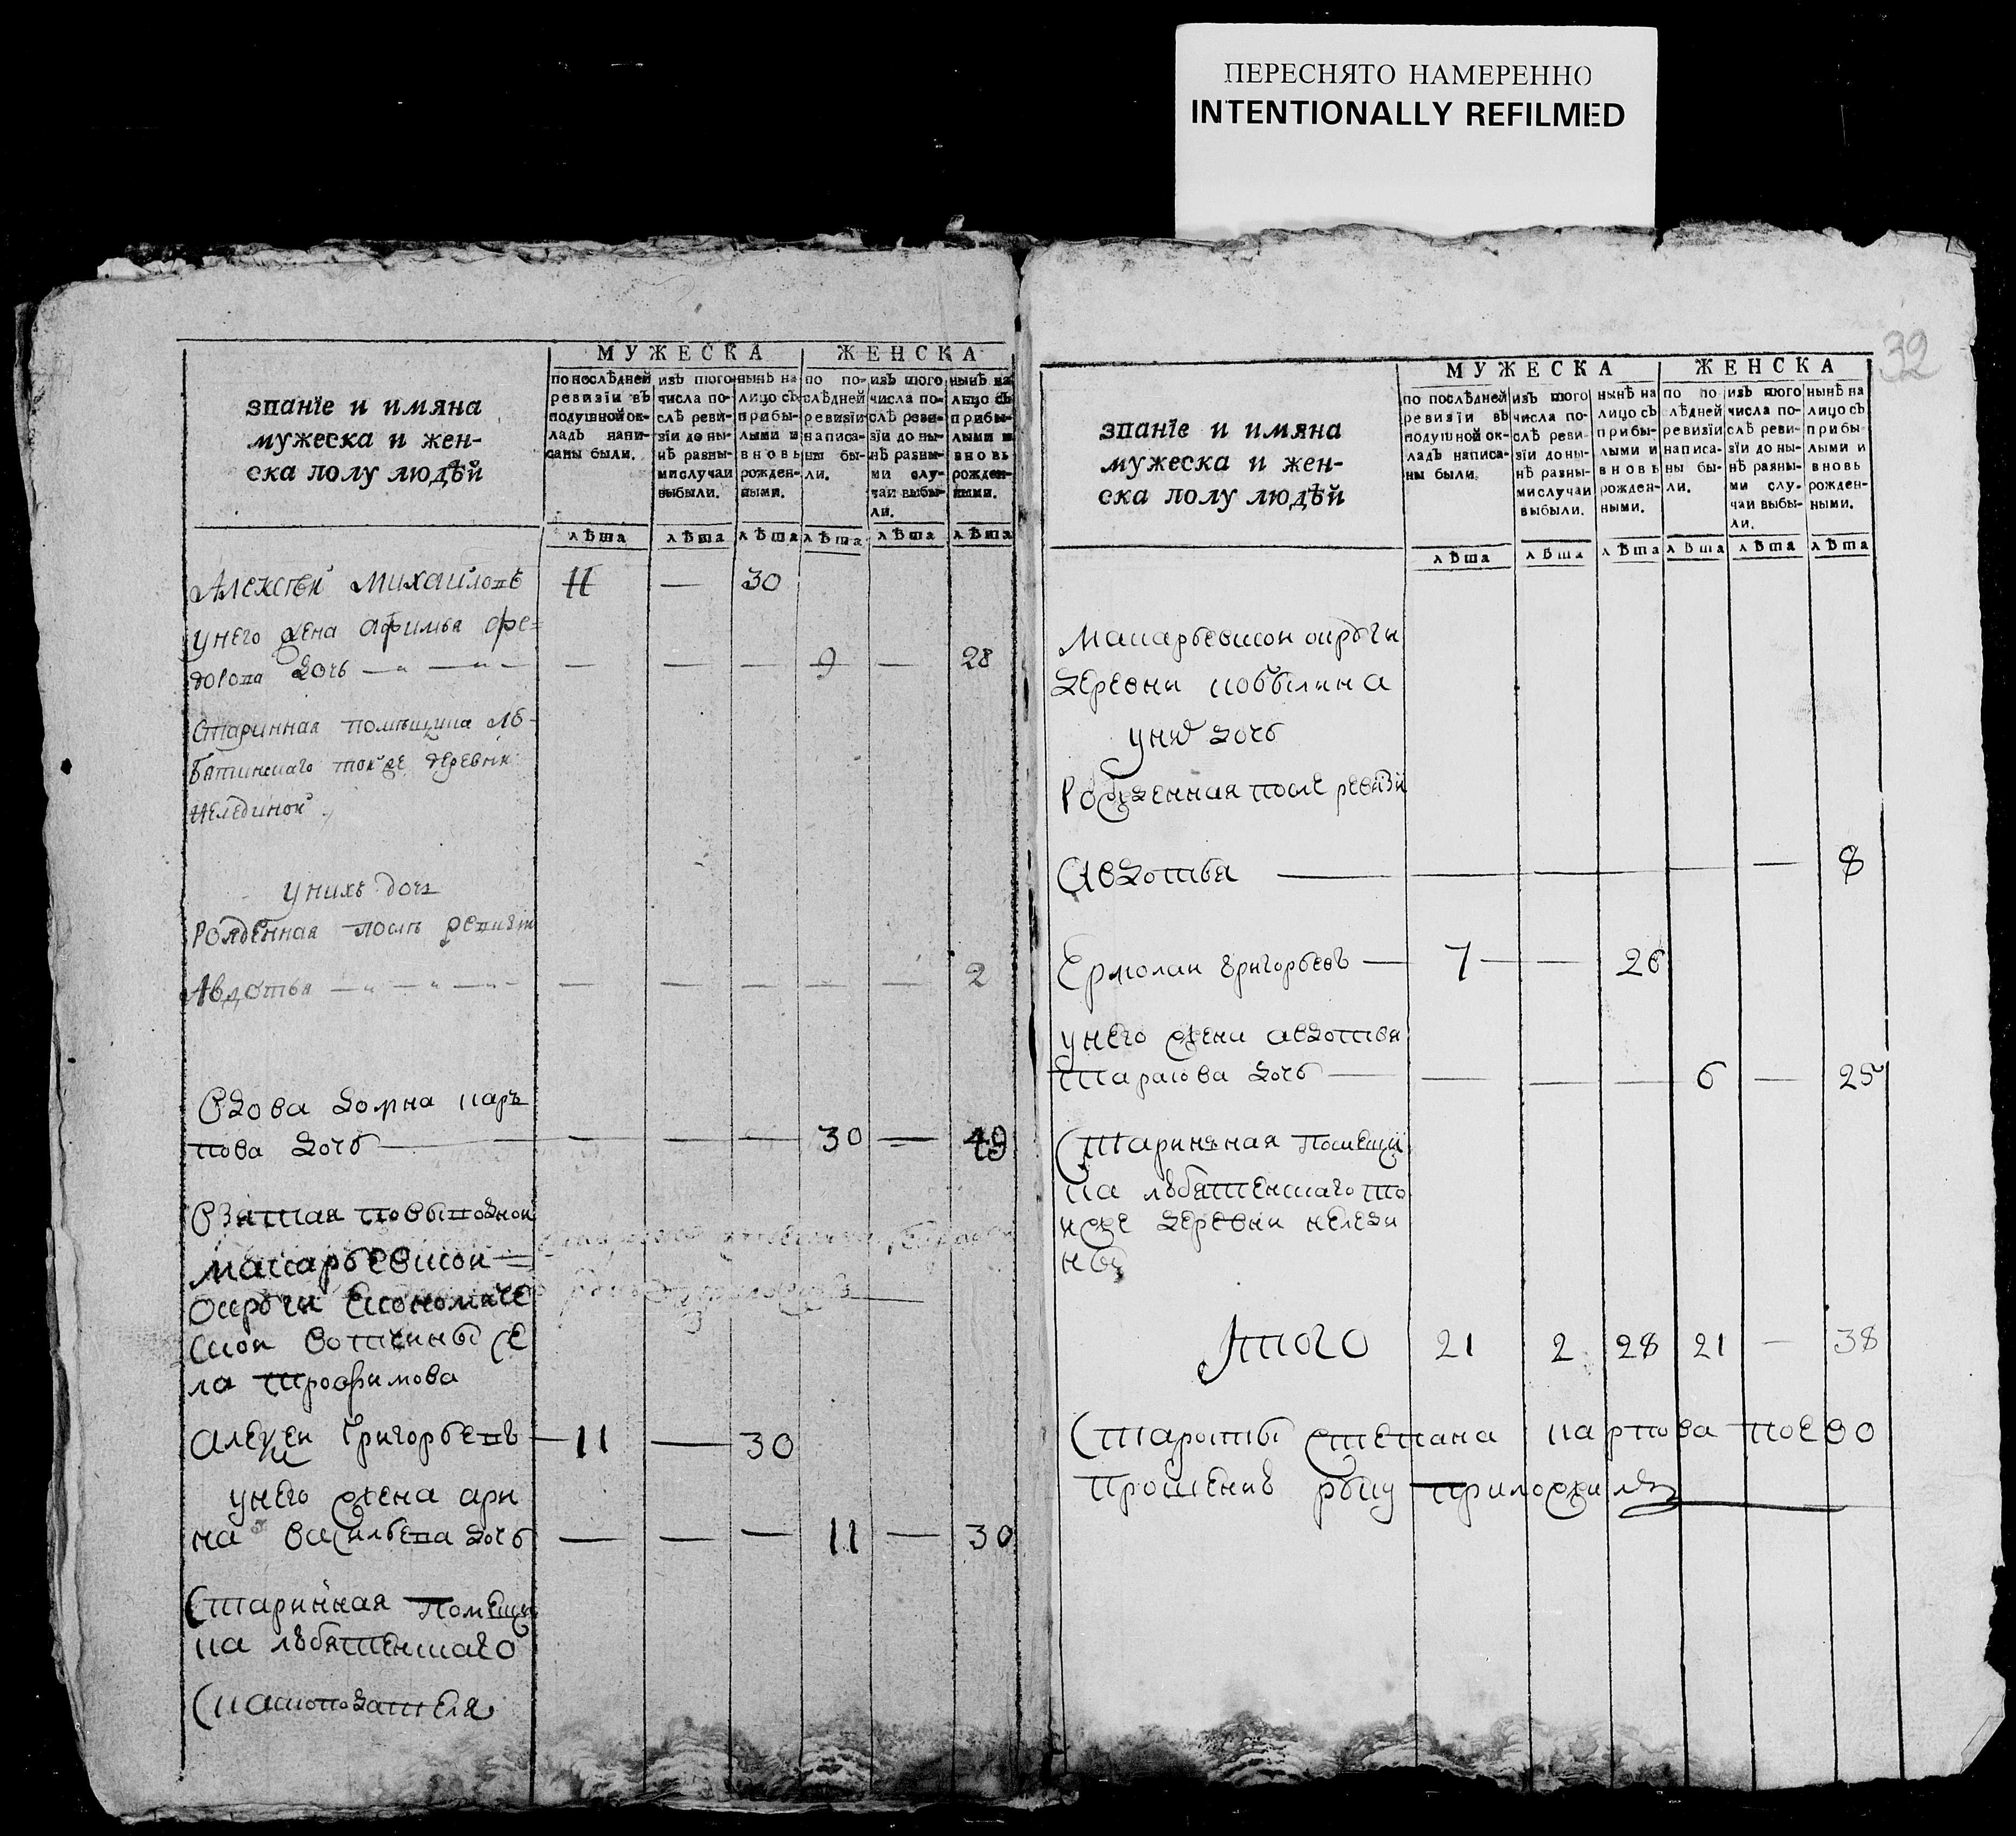 ПЕРЕСНЯТО НАМЕРЕННО
INTENTIONALLY REFILMED
32
МУЖЕСКА ЖЕНСКА
званїе и имяна
мужеска и жен-
ска полу людѣй
по послѣдней
ревизїи въ
подушной ок-
ладѣ напи-
саны были.
изъ того
числа по-
слѣ реви-
зїи до ны-
нѣ разны-
ми случаи
выбыли.
нынѣ на
лицо съ
прибы-
лыми и
вновь
рожден-
ными.
по по-
слѣдней
ревизїи
написа-
ны бы-
ли.
изъ того
числа по-
слѣ реви-
зїи до ны-
нѣ разны-
ми слу-
чаи выбы-
ли.
нынѣ на
лицо съ
прибы-
лыми и
вновь
рожден-
ными.
лѣта лѣта лѣта лѣта лѣта лѣта
Алексѣй Михаиловъ 11 — 30
у него жена Афимья Фе=
дорова дочь — — — — 9 — 28
Старинная помѣщика Лб-
батинскаго той же деревни
Нелединой
у нихъ дочь
рожденная послѣ ревизїи
Авдотья — — — — — — 2
Вдова Домна кар
пова дочь — — — — 30 — 49
Взятая по выводной
макарьевской
округи економиче
ской вотчины се
ла трофимова
алексеи григорьевъ — 11 — 30
у него жена ари
на васильева дочь — — — 11 — 30
Старинная помещи
ка лъбятенскаго
скакоподателя
МУЖЕСКА ЖЕНСКА
званїе и имяна
мужеска и жен-
ска полу людѣй
по послѣдней
ревизїи въ
подушной ок-
ладъ написа-
ны были.
изъ того
числа по-
слѣ реви-
зїи до ны-
нѣ разны-
ми случаи
выбыли.
нынѣ на
лицо съ
прибы-
лыми и
вновь
рожден-
ными.
по по
слѣдней
ревизїи
написа-
ны бы-
ли.
изъ того
числа по-
слѣ реви-
зїи до ны-
нѣ разны-
ми слу-
чаи выбы-
ли.
нынѣ на
лицо съ
прибы-
лыми и
вновь
рожден-
ными.
лѣта лѣта лѣта лѣта лѣта лѣта
макарьевской округи
деревни кобылина
у них дочь
Рожденная после ревизїи
Авдотья — — — — — — 8
Ермолаи григорьевъ — 7 — — 26
у него жена авдотья
тарасова дочь — — — — 6 — 25
Старинъная помещи
ка лъбятенскаго то
и же деревни неледи
ны
Итого 21 2 28 21 — 38
Старосты степана карпова по ево
прошению руку приложилъ